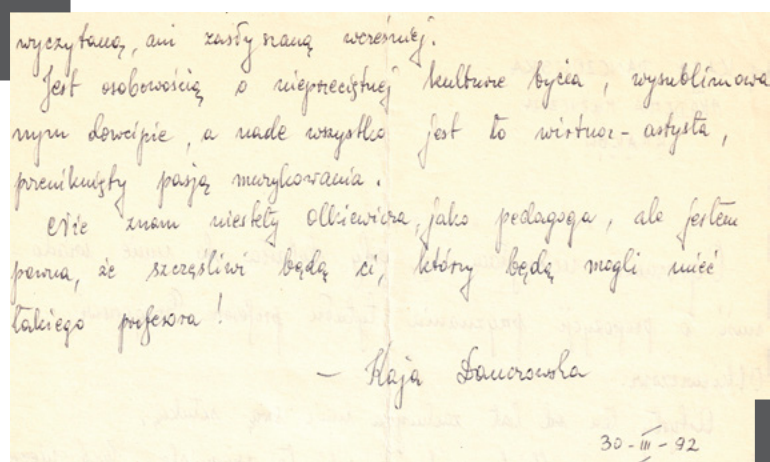 wyczytaną, ani zasłyszaną wcześniej.
Jest osobowością o nieprzeciętnej kulturze bycia, wysublimowa
nym dowcipie, a nade wszystko jest to wirtuoz-artysta,
przeniknięty pasją muzykowania.
Nie znam niestety Olkiewicza, jako pedagoga, ale jestem
pewna, że szczęśliwi będą ci, którzy będą mogli mieć
takiego profesora!
— Kaja Danczowska
30-III-92